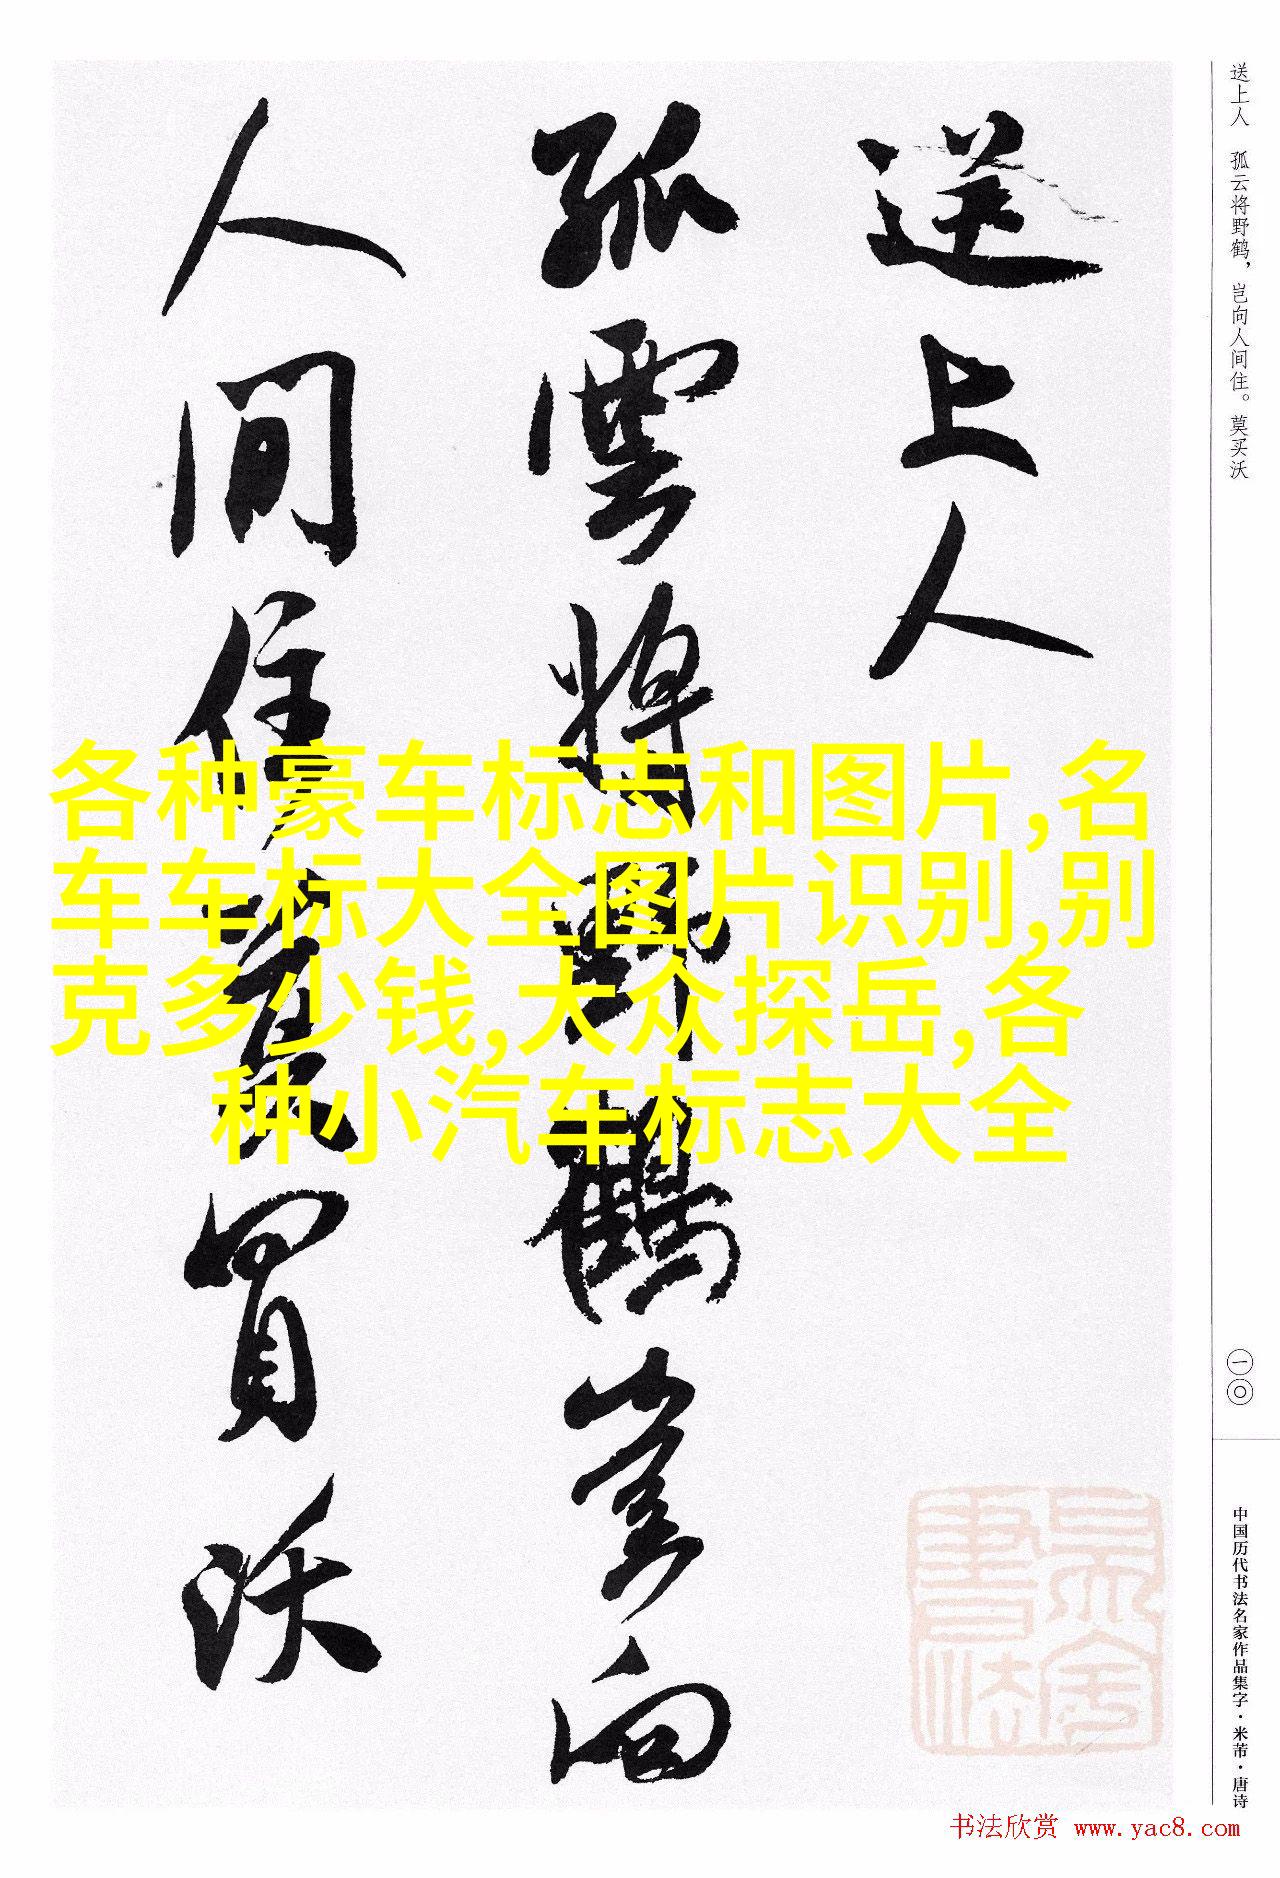 送上人 孤云将野鹤，岂向人间住。莫买沃
送上人
孤雲將野鶴豈向
人间住莫買沃
各种豪车标志和图片,名
车车标大全图片识别,别
克多少钱,大众探岳,各
种小汽车标志大全
一〇
中国历代书法名家作品集字·米芾·唐诗
书法欣赏 www.yac8.com